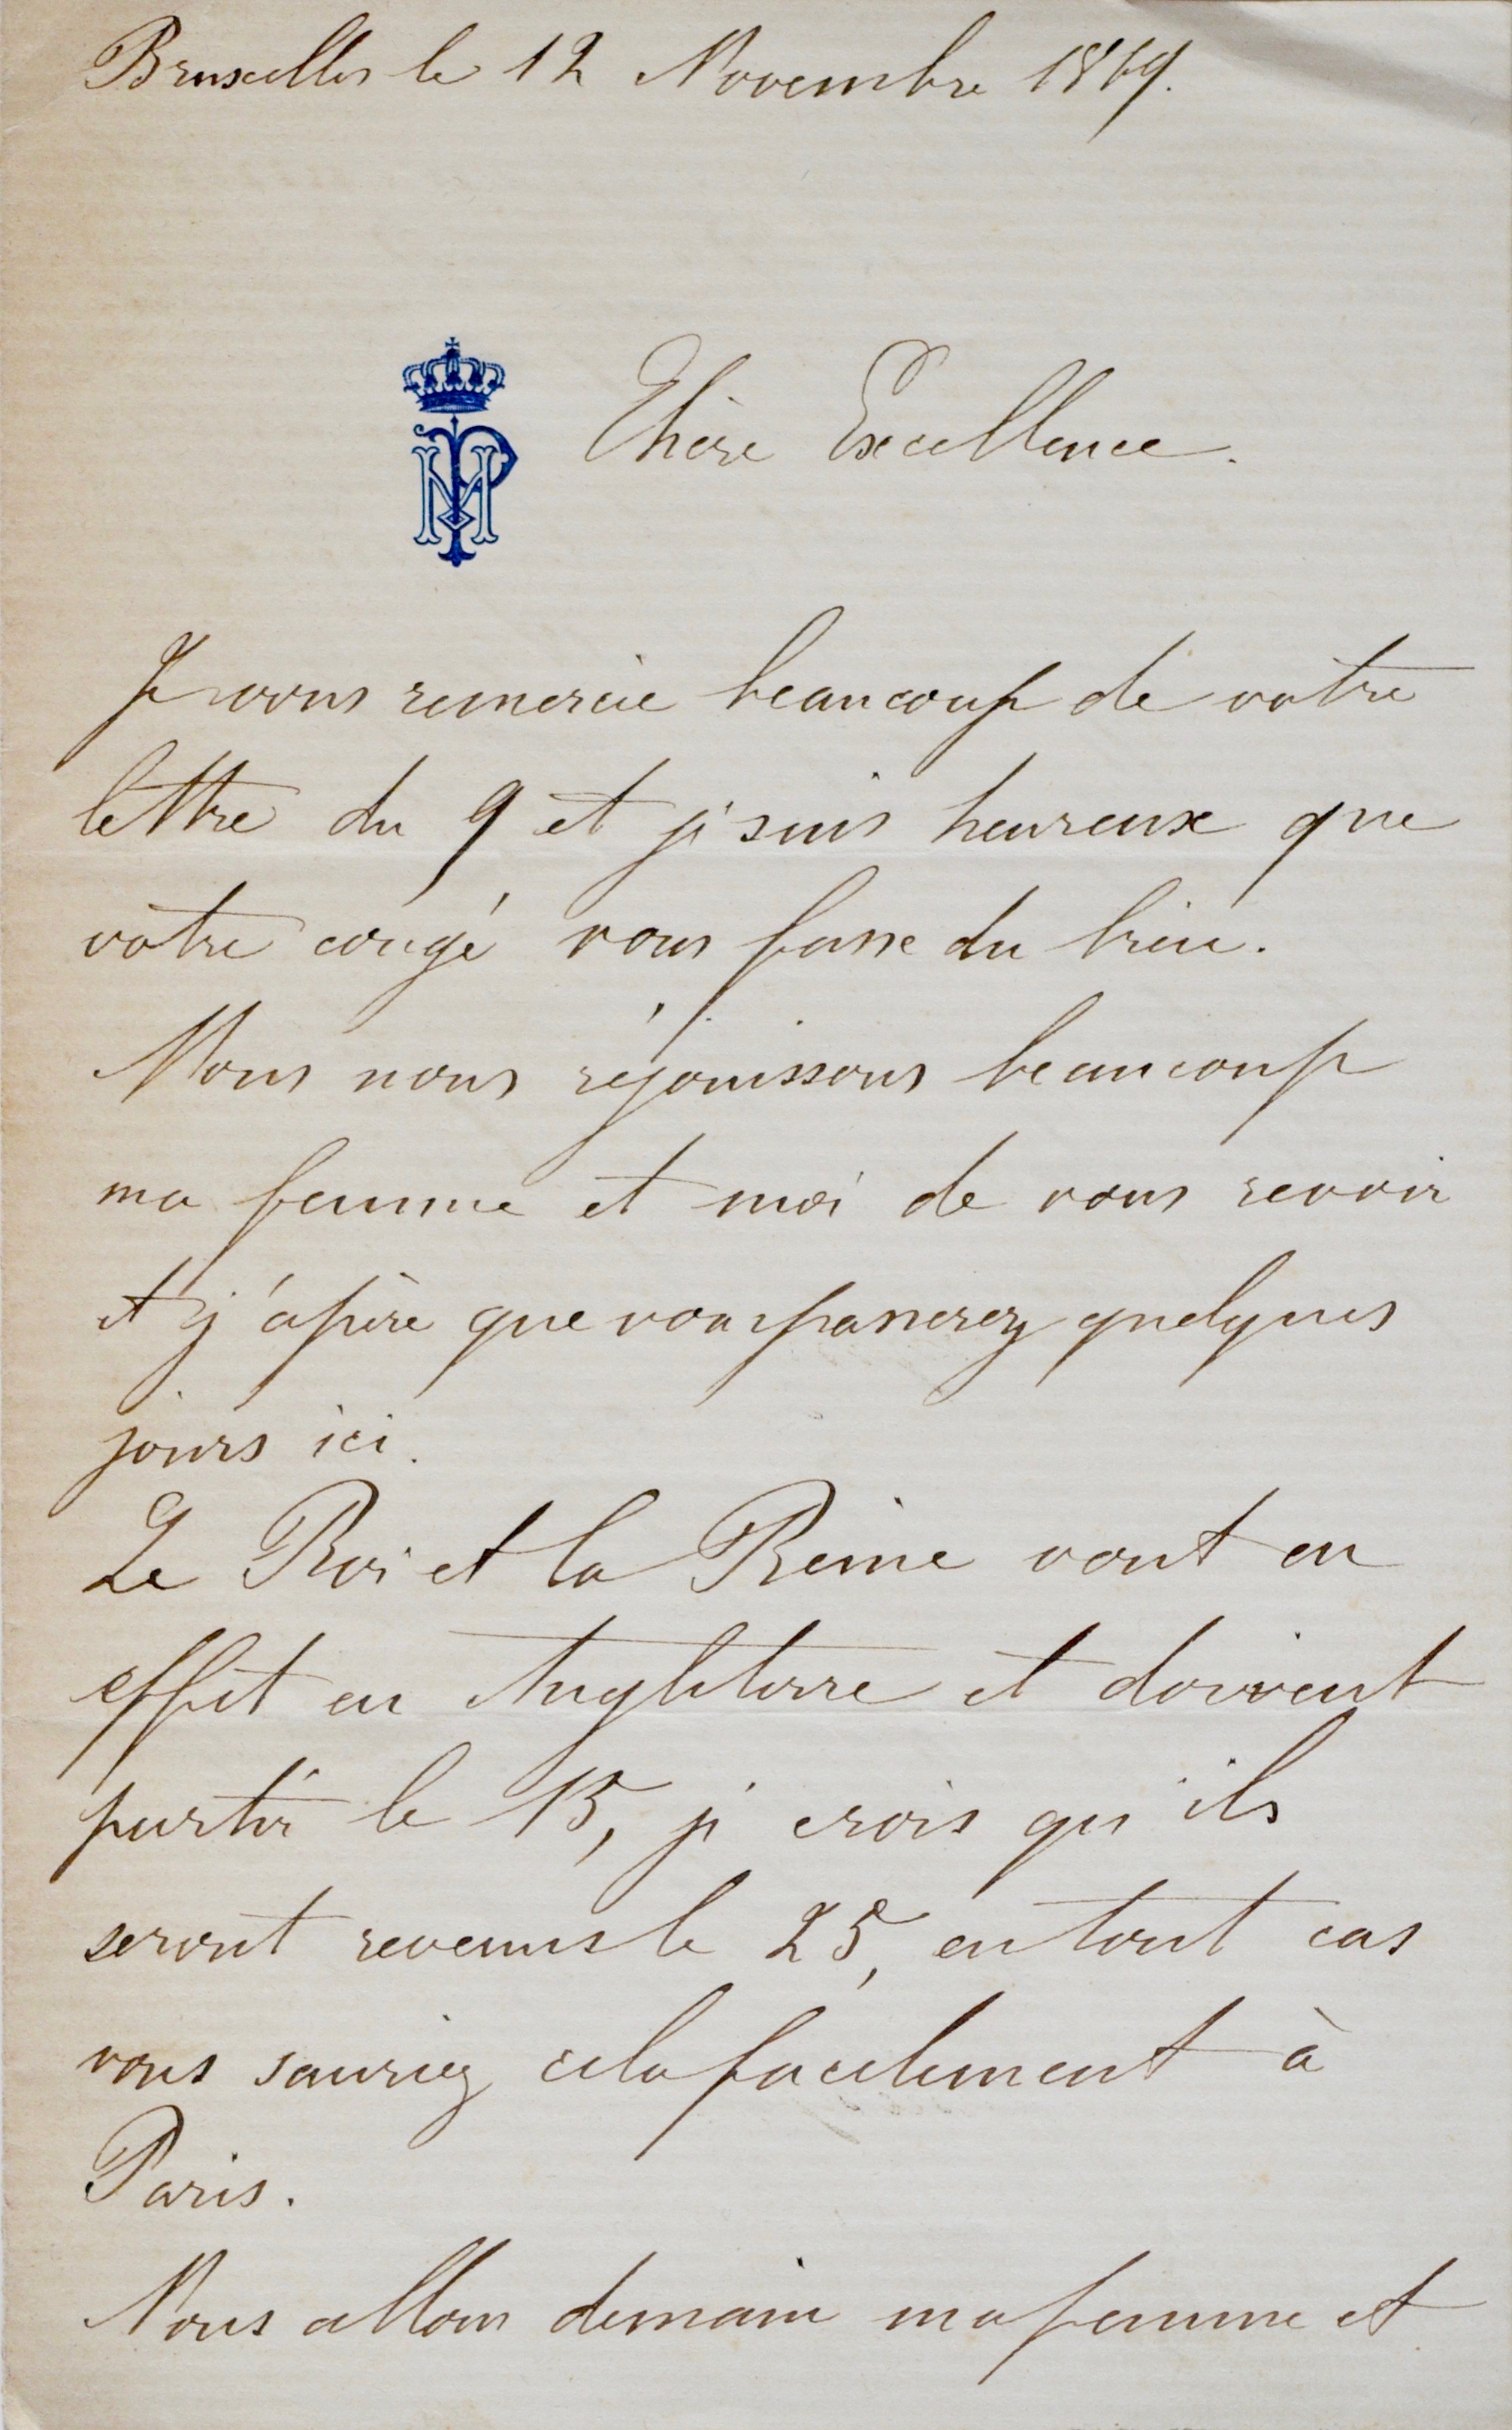 Bruxelles le 12 Novembre 1869.
Chère Excellence.
Je vous remercie beaucoup de votre
lettre du 9 et je suis heureux que
votre congé vous fasse du bien.
Nous nous réjouissons beaucoup
ma femme et moi de vous revoir
et j'espère que vous passerez quelques
jours ici.
Le Roi et la Reine vont en
effet en Angleterre et doivent
partir le 15, je crois qu'ils
seront revenus le 25, en tout cas
vous sauriez cela facilement à
Paris.
Nous allons demain ma femme et